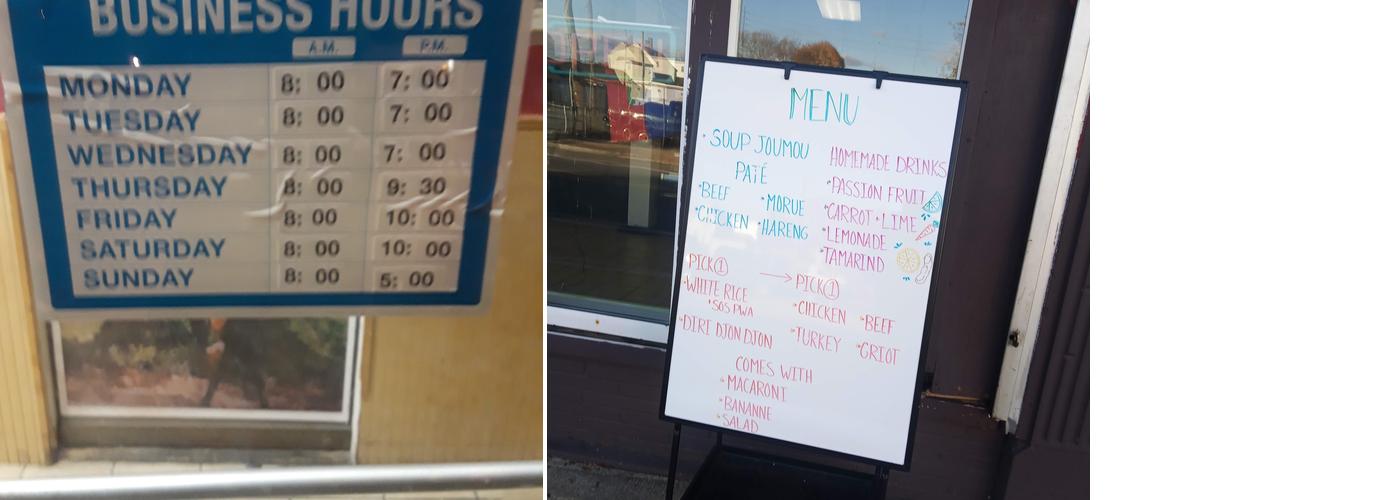 BUSINESS HOURS
A.M. P.M.
MONDAY 8: 00 7: 00
TUESDAY 8: 00 7: 00
WEDNESDAY 8: 00 7: 00
THURSDAY 8: 00 9: 30
FRIDAY 8: 00 10: 00
SATURDAY 8: 00 10: 00
SUNDAY 8: 00 5: 00
MENU
• SOUP JOUMOU
PATÉ
• BEEF • MORUE
• CHICKEN • HARENG
HOMEMADE DRINKS
• PASSION FRUIT
• CARROT + LIME
• LEMONADE
• TAMARIND
PICK ① → PICK ①
• WHITE RICE
• SOS PWA
• DIRI DJON DJON
• CHICKEN • BEEF
• TURKEY • GRIOT
COMES WITH
• MACARONI
• BANANNE
• SALAD